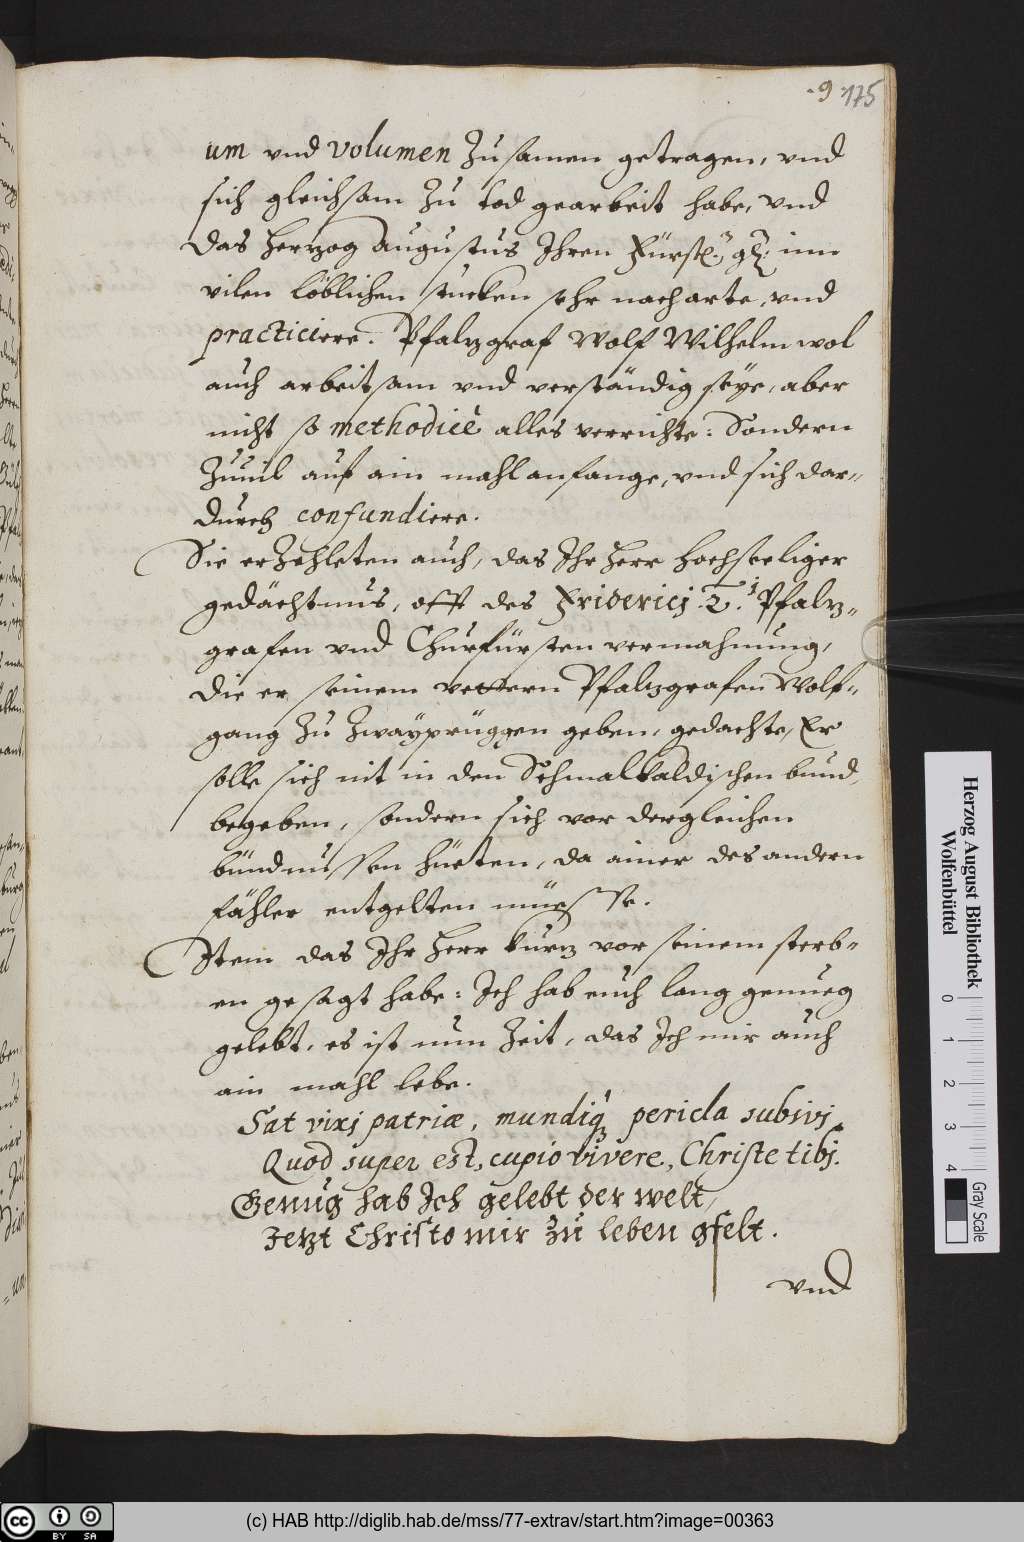 .9. 175
um vnd volumen Zusamen getragen, vnd
sich gleichsam Zu tod gearbeit habe, vnd
das Herzog Augustus Ihren Fürstl. gl: inn
vilen löblichen stucken sehr nacharte, vnd
practiciere. Pfalzgraf Wolf Wilhelm wol
auch arbeitsam vnd verständig seye, aber
nicht so methodicè alles verrichte: Sondern
Zuuil auf ain mahl anfange, vnd sich dar-
durch confundiere.
Sie erZehleten auch, das Ihr Herr Hochseeliger
gedächtnus, offt des Friderici .2.i Pfalz-
grafen vnd Churfürsten vermahnung,
die er seinem vettern Pfalzgrafen Wolf-
gang Zu Zwayprüggen geben, gedachte, Er
solle sich nit in den Schmalkaldischen bund
begeben, sondern sich vor dergleichen
bündnussen hüeten, da ainer des andern
fähler entgelten müesse.
Item das Ihr Herr kurz vor seinem sterb-
en gesagt habe: Ich hab euch lang genueg
gelebt, es ist nun Zeit, das Ich mir auch
ain mahl lebe.
Sat vixj patriæ, mundiq; pericla subivj
Quod super est, cupio vivere, Christe tibj.
Genug hab Ich gelebt der welt,
Jetzt Christo mir zu leben gfelt.
vnd
Herzog August Bibliothek
Wolfenbüttel
0 1 2 3 4
Gray Scale
cc BY SA
(c) HAB http://diglib.hab.de/mss/77-extrav/start.htm?image=00363